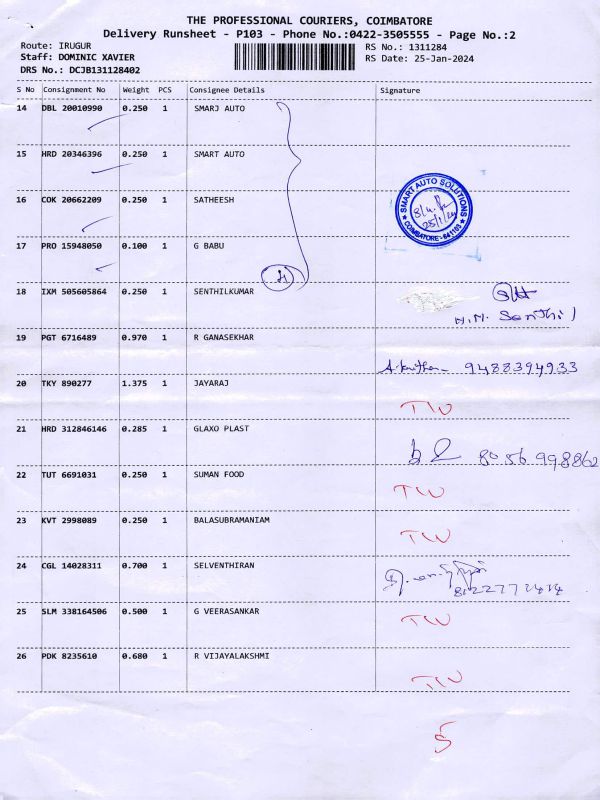 THE PROFESSIONAL COURIERS, COIMBATORE
Delivery Runsheet - P103 - Phone No.:0422-3505555 - Page No.:2
Route: IRUGUR RS No.: 1311284
Staff: DOMINIC XAVIER RS Date: 25-Jan-2024
DRS No.: DCJB131128402
S No Consignment No Weight PCS Consignee Details Signature
14 DBL 20010990 0.250 1 SMARJ AUTO
15 HRD 20346396 0.250 1 SMART AUTO
16 COK 20662209 0.250 1 SATHEESH
SMART AUTO SOLUTIONS
25/1/24
COIMBATORE - 641103
17 PRO 15948050 0.100 1 G BABU
4
18 IXM 505605864 0.250 1 SENTHILKUMAR
N.M. Senthil
19 PGT 6716489 0.970 1 R GANASEKHAR
9488394933
20 TKY 890277 1.375 1 JAYARAJ
TW
21 HRD 312846146 0.285 1 GLAXO PLAST
8056998862
22 TUT 6691031 0.250 1 SUMAN FOOD
TW
23 KVT 2998089 0.250 1 BALASUBRAMANIAM
TW
24 CGL 14028311 0.700 1 SELVENTHIRAN
25 SLM 338164506 0.500 1 G VEERASANKAR
TW
26 PDK 8235610 0.680 1 R VIJAYALAKSHMI
TW